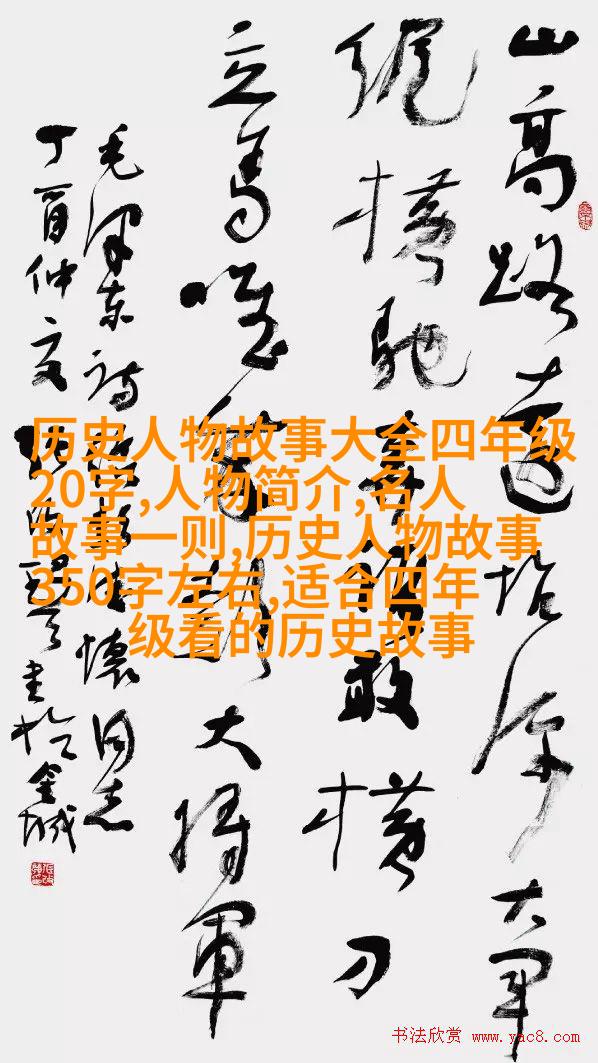 山高路遠坑深大军
縱橫馳奔誰敢橫刀
立馬唯我彭大將軍
毛泽东诗 懷同志
丁酉仲夏 書於金城
历史人物故事大全四年级
20字,人物简介,名人
故事一则,历史人物故事
350字左右,适合四年
级看的历史故事
书法欣赏 www.yac8.com